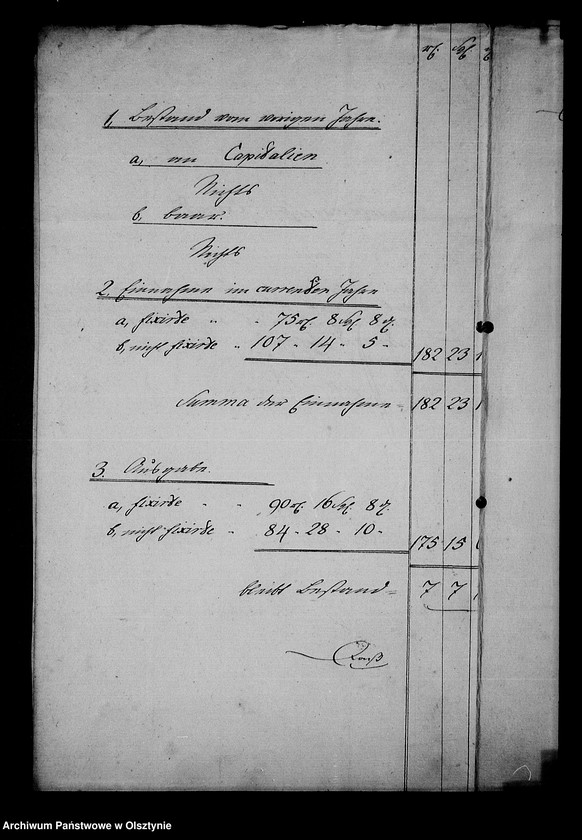 rℓ. Sgℓ. ₰
1, Bestand vom vorigen Jahre.
a, an Capitalien
Nichts
b, baar.
Nichts
2. Einnahme im currenten Jahre
a, fixirte " " 75 rℓ. 8 Sgℓ. 8 ₰.
b, nicht fixirte " 107 - 14 - 5 - 182 23 1
Summa der Einnahme 182 23 1
3. Ausgabe.
a, fixirte " " 90 rℓ. 16 Sgℓ. 8 ₰.
b, nicht fixirte " 84 - 28 - 10 - 175 15
bleibt Bestand = 7 7
Archiwum Państwowe w Olsztynie